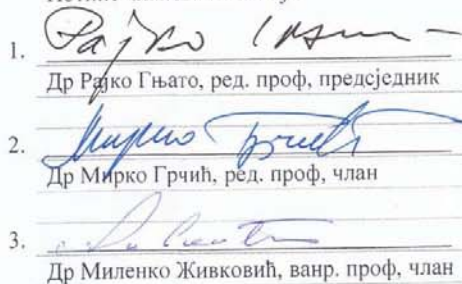 1. Рајко
Др Рајко Гњато, ред. проф, предсједник
2. Мирко Грчић
Др Мирко Грчић, ред. проф, члан
3.
Др Миленко Живковић, ванр. проф, члан